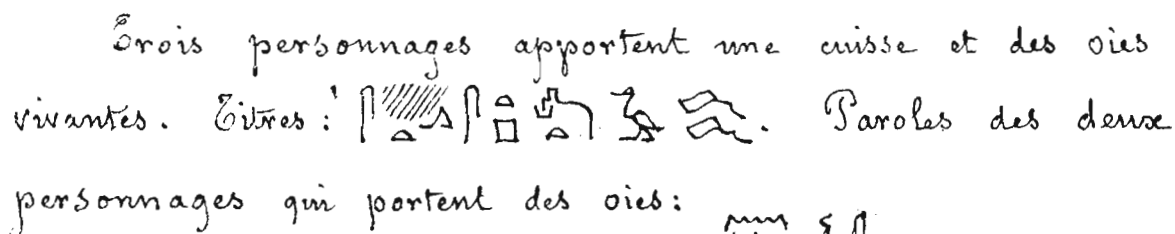 Trois personnages apportent une cuisse et des oies
vivantes. Titres : . Paroles des deux
personnages qui portent des oies :